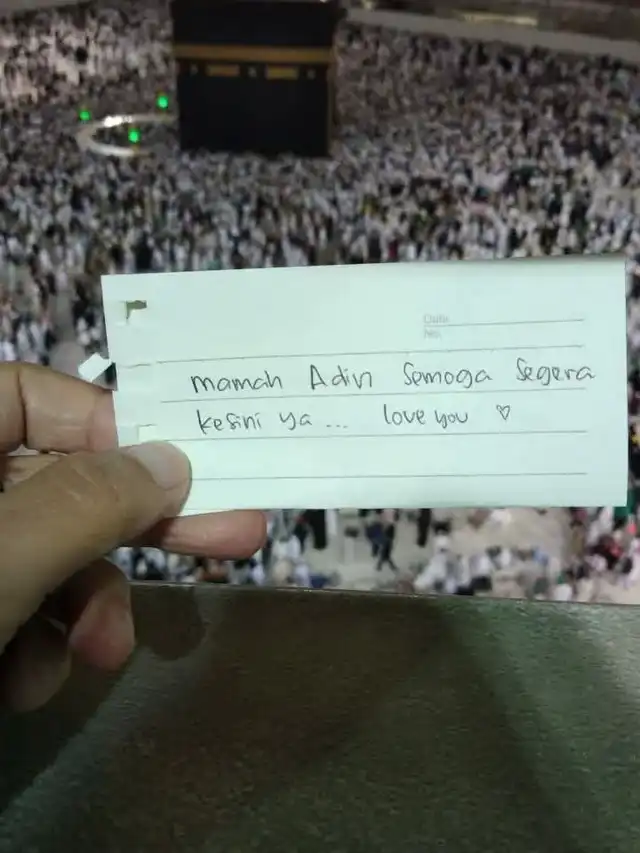 Date
No.
mamah Adin Semoga Segera
kesini ya ... love you ♡